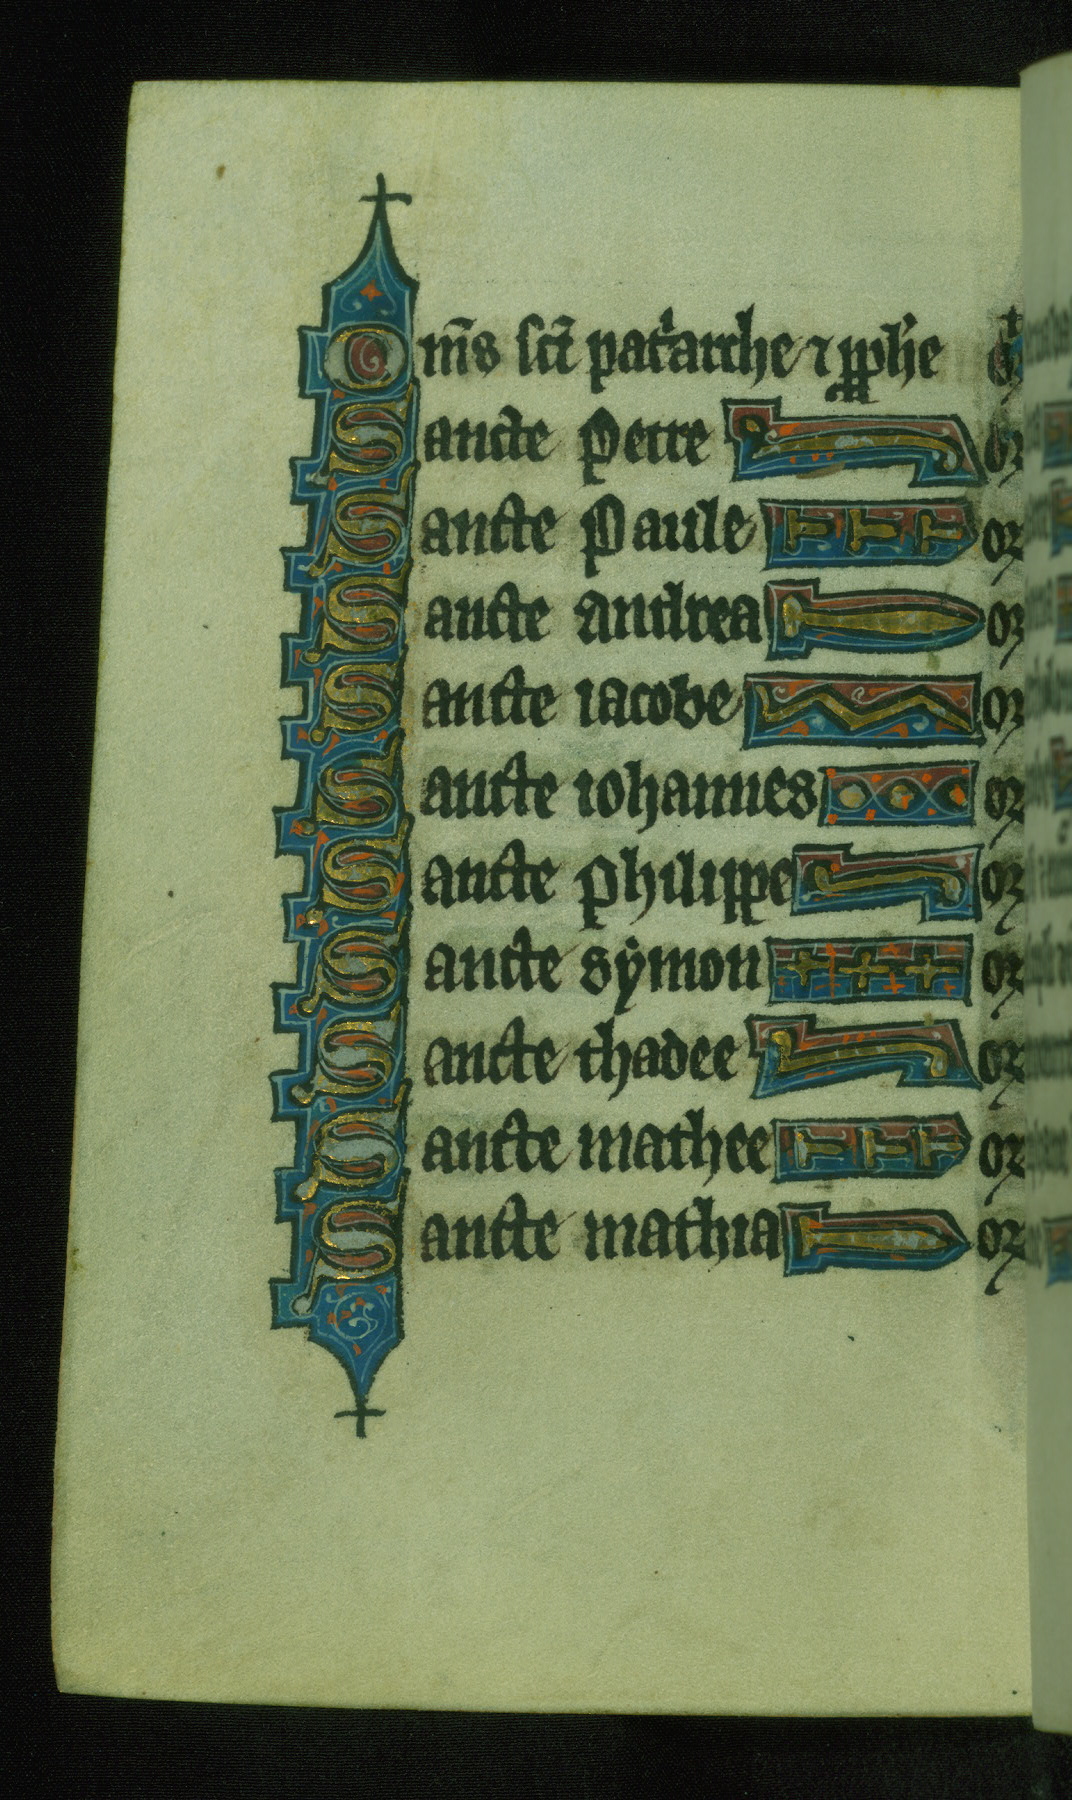 Om̄s sc̄i pat̾arche ⁊ ꝓph̾e
Sancte Petre oꝛ
Sancte Paule oꝛ
Sancte andrea oꝛ
Sancte iacobe oꝛ
Sancte iohannes oꝛ
Sancte philippe oꝛ
Sancte symon oꝛ
Sancte thadee oꝛ
Sancte mathee oꝛ
Sancte mathia oꝛ